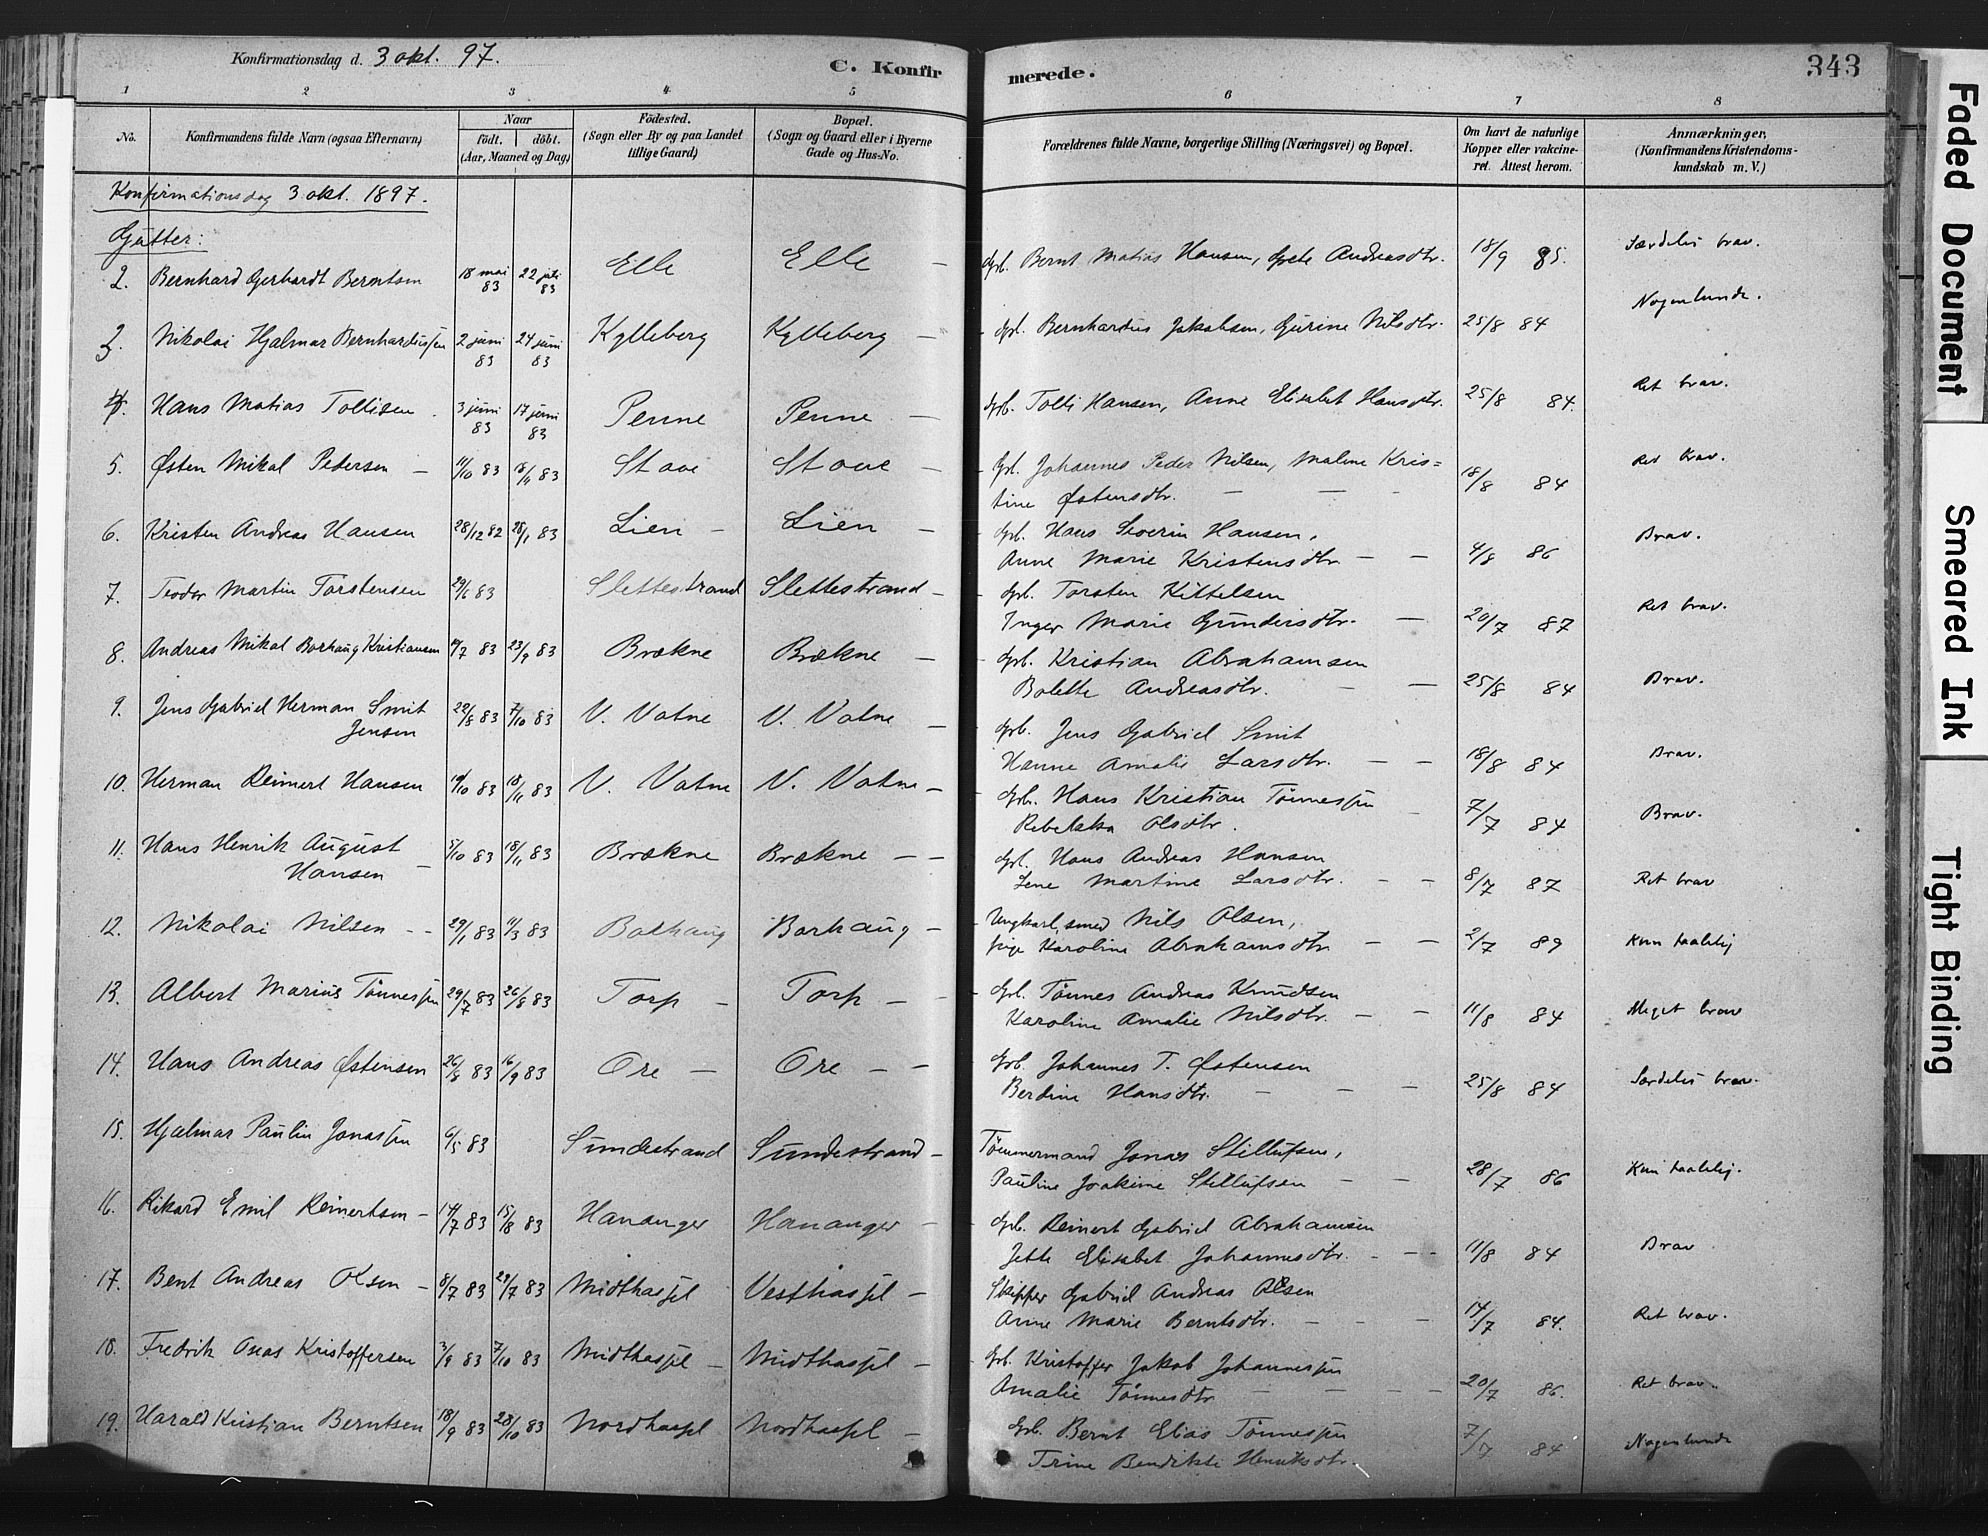 Konfirmationsdag d. 3 okt. 97.
C. Konfirmerede.
343
1 2 3 4 5 6 7 8
No.
Konfirmandens fulde Navn (ogsaa Efternavn)
Naar
födt. döbt.
(Aar, Maaned og Dag)
Födested.
(Sogn eller By og paa Landet
tillige Gaard)
Bopæl.
(Sogn og Gaard eller i Byerne
Gade og Hus-No.
Forældrenes fulde Navne, borgerlige Stilling (Næringsvei) og Bopæl.
Om havt de naturlige
Kopper eller vakcine-
ret. Attest herom.
Anmærkninger,
(Konfirmandens Kristendoms-
kundskab m. V.)
Konfirmationsdag 3 okt. 1897.
Gutter:
2. Bernhard Gerhardt Berntsen 18 mai 83 22 juli 83 Elle Elle – Gbr. Bernt Matias Hansen, Grete Andreasdtr. 18/9 85. Særdeles brav.
3. Nikolai Hjalmar Bernhardussen 2 juni 83 24 juni 83 Kylleberg Kylleberg – Gbr. Bernhardus Jakobsen, Gurine Nilsdtr. 25/8 84 Nogenlunde.
4. Hans Matias Tollisen. 3 juni 83 17 juni 83 Penne Penne – Gbr. Tolli Hansen, Anne Elisabet Hansdtr. 25/8 84. Ret brav.
5. Østen Mikal Pedersen – 11/10 83 18/11 83 Stave Stave – Gbr. Johannes Peder Nilsen, Malene Kris=
tine Østensdtr. – – 18/8 84 Ret brav.
6. Kristen Andreas Hansen 28/12 82 28/1 83 Lien – Lien – Gbr. Hans Severin Hansen,
Anne Marie Kristensdtr – – 4/8 86 Brav.
7. Teodor Martin Torstensen 29/6 83 Slettestrand Slettestrand – Gbr. Torsten Kittelsen
Inger Marie Gundersdtr. – 20/7 87 Ret brav.
8. Andreas Mikal Borhaug Kristiansen 19/7 83 23/9 83 Brækne Brækne – Gbr. Kristian Abrahamsen
Bolette Andreasdtr. – – 25/8 84 Brav.
9. Jens Gabriel Herman Smit
Jensen 22/8 83 7/10 83 V. Vatne V. Vatne – Gbr. Jens Gabriel Smit
Hanne Amalie Larsdtr. – – 18/8 84 Brav.
10. Herman Reinert Hansen 19/10 83 18/11 83 V. Vatne V. Vatne – Gbr. Hans Kristian Tønnessen
Rebekka Olsdtr. 7/7 84 Brav.
11. Hans Henrik August
Hansen – 5/10 83 18/11 83 Brækne Brækne – – Gbr. Hans Andreas Hansen
Lene Martine Larsdtr. – – 8/7 87 Ret brav
12. Nikolai Nilsen – – 29/1 83 11/3 83 Borhaug Borhaug – Ungkarl, smed Nils Olsen,
pige Karoline Abrahamsdtr – – 2/7 89 Kun taalelig
13. Albert Marius Tønnessen 29/7 83 26/8 83 Torp – Torp – – Gbr. Tønnes Andreas Knudsen
Karoline Amalie Nilsdtr. – – 11/8 84 Meget brav
14. Hans Andreas Østensen 26/8 83 16/9 83 Ore – Ore – – Gbr. Johannes T. Østensen
Berdine Hansdtr. – – – 25/8 84 Særdeles brav.
15. Hjalmar Paulin Jonassen 6/5 83 Sundestrand Sundestrand – Tømmermand Jonas Stillufsen,
Pauline Joakime Stillufsen – – 28/7 86 Kun taalelig.
16. Rikard Emil Reinertsen – 14/7 83 15/8 83 Hananger Hananger – Gbr. Reinert Gabriel Abrahamsen
Jette Elisabet Johannesdtr. – – – 11/8 84 Brav
17. Bent Andreas Olsen – 8/7 83 29/7 83 Midthassel Vesthassel – Skipper Gabriel Andreas Olsen
Anne Marie Berntsdtr. – – – 14/7 84. Ret brav.
18. Fredrik Onas Kristoffersen 3/9 83 7/10 83 Midthassel – Midthassel – Gbr. Kristoffer Jakob Johannessen
Amalie Tønnesdtr – – – – 20/7 86. Ret brav.
19. Harald Kristian Berntsen 18/9 83 28/10 83 Nordhassel Nordhassel – Gbr. Bernt Elias Tønnessen
Trine Bendikte Henriksdtr. 7/7 84 Nogenlunde
Faded Document
Smeared Ink
Tight Binding